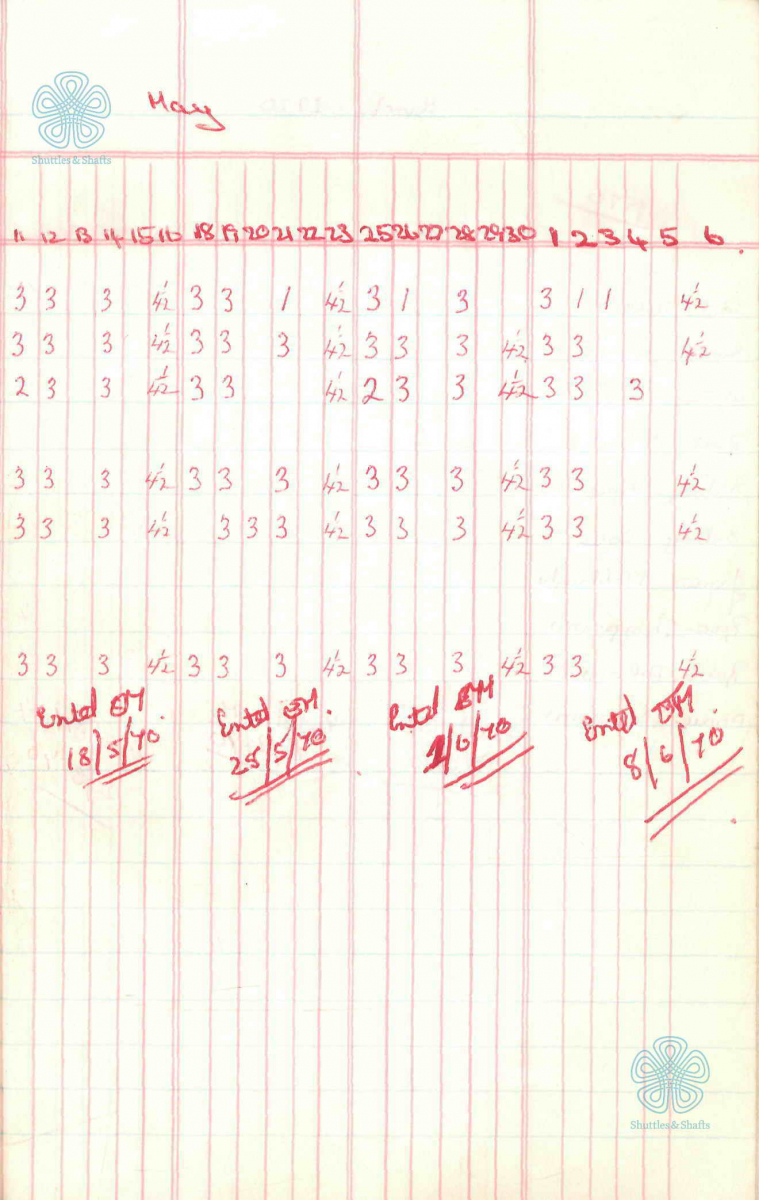 May
Shuttles & Shafts
11 12 13 14 15 16 18 19 20 21 22 23 25 26 27 28 29 30 1 2 3 4 5 6
3 3 3 4½ 3 3 1 4½ 3 1 3 3 1 1 4½
3 3 3 4½ 3 3 3 4½ 3 3 3 4½ 3 3 4½
2 3 3 4½ 3 3 4½ 2 3 3 4½ 3 3 3
3 3 3 4½ 3 3 3 4½ 3 3 3 4½ 3 3 4½
3 3 3 4½ 3 3 3 4½ 3 3 3 4½ 3 3 4½
3 3 3 4½ 3 3 3 4½ 3 3 3 4½ 3 3 4½
Entd Entd Entd Entd
18/5/70 25/5/70 1/6/70 8/6/70
Shuttles & Shafts